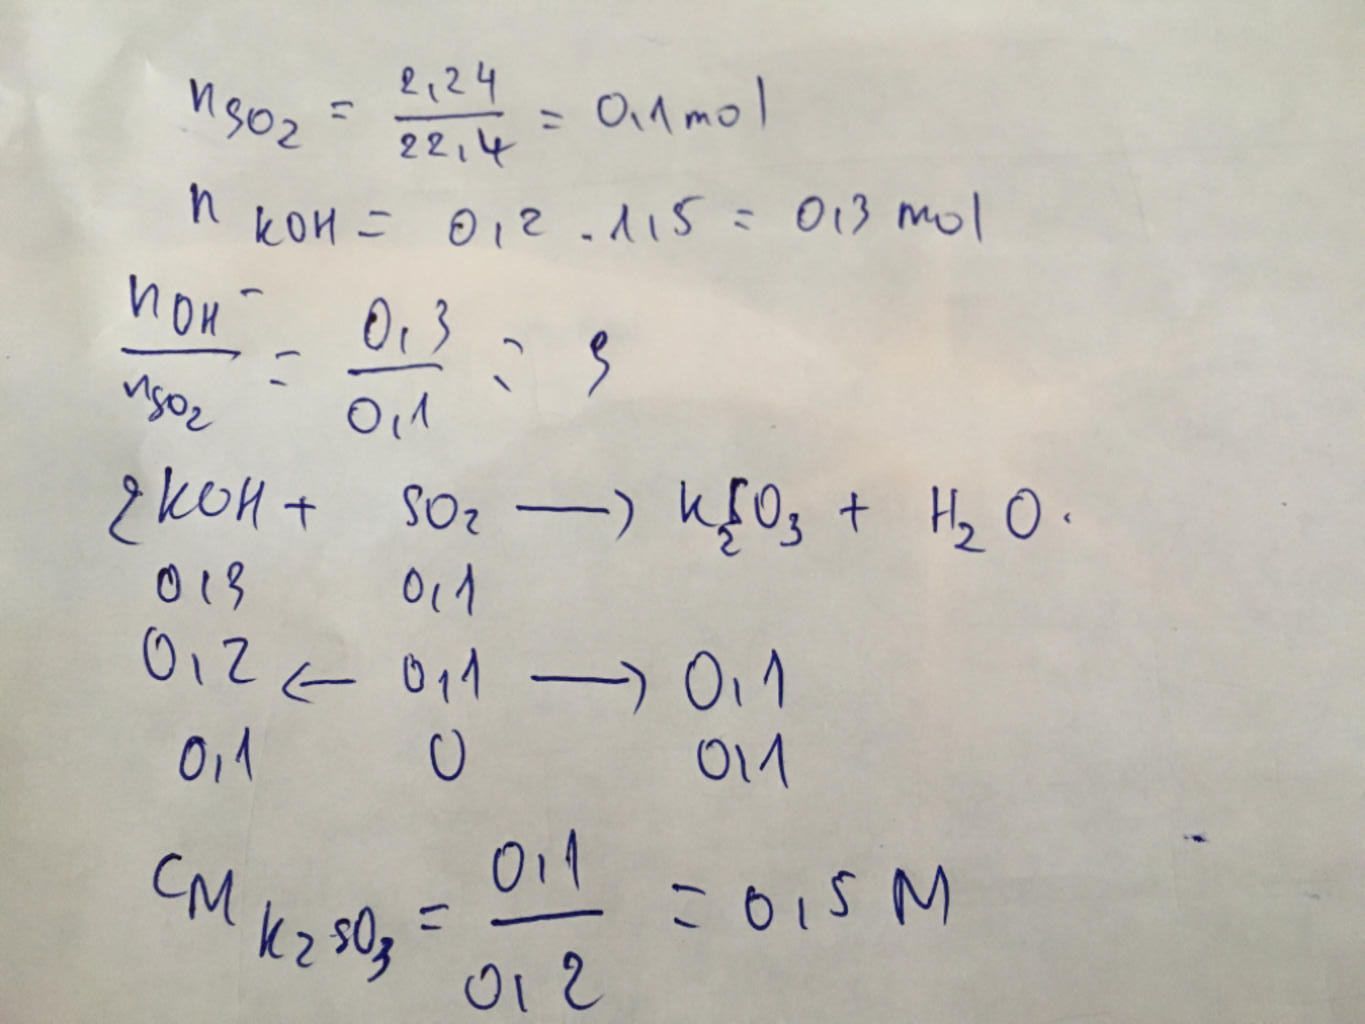 nSO2 = 2,24/22,4 = 0,1 mol
n KOH = 0,2 . 1,5 = 0,3 mol
nOH⁻/nSO2 = 0,3/0,1 = 3
2KOH + SO2 → K2SO3 + H2O.
0,3 0,1
0,2 ← 0,1 → 0,1
0,1 0 0,1
CM K2SO3 = 0,1/0,2 = 0,5 M